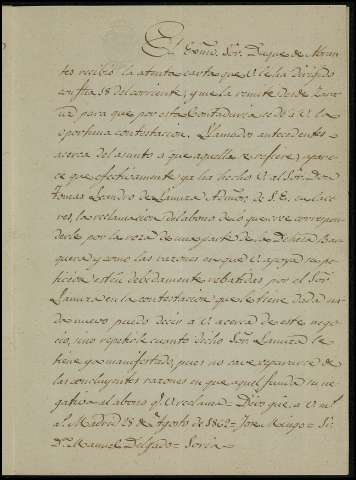 El Exmo. Sor. Duque de Abran-
tes recibió la atenta carta que V. le ha dirigido
con fha 18 del corriente, y que la remite desde Zara-
uz para que por esta Contaduría se dé a V. la
oportuna contestacion. Llamados antecedentes
acerca del asunto a que aquella se refiere, apare-
ce que efectivamente ya ha hecho V. al Sor. Don
Tomas Leandro de Lamiza Admor. de S. E. en
la reclamacion del abono de lo que cree correspon-
derle por la roza de una parte de la Dehesa
y como las razones en que V. apoya su pe-
ticion están debidamente rebatidas por el Sor.
Lamiza en la contestacion que le tiene dada na-
da nuevo puedo decir a V. acerca de este nego-
cio, sino repetirle cuanto dicho Sor. Lamiza le
tiene ya manifestado, pues no cave separarse de
las concluyentes razones en que aquel funda su ne-
gativa al abono q. V. reclama = Dios gue. a V. m. s
a. s Madrid 28 de Agosto de 1862 = Jose Mingo = Sr.
Dn. Manuel Delgado = Soria =